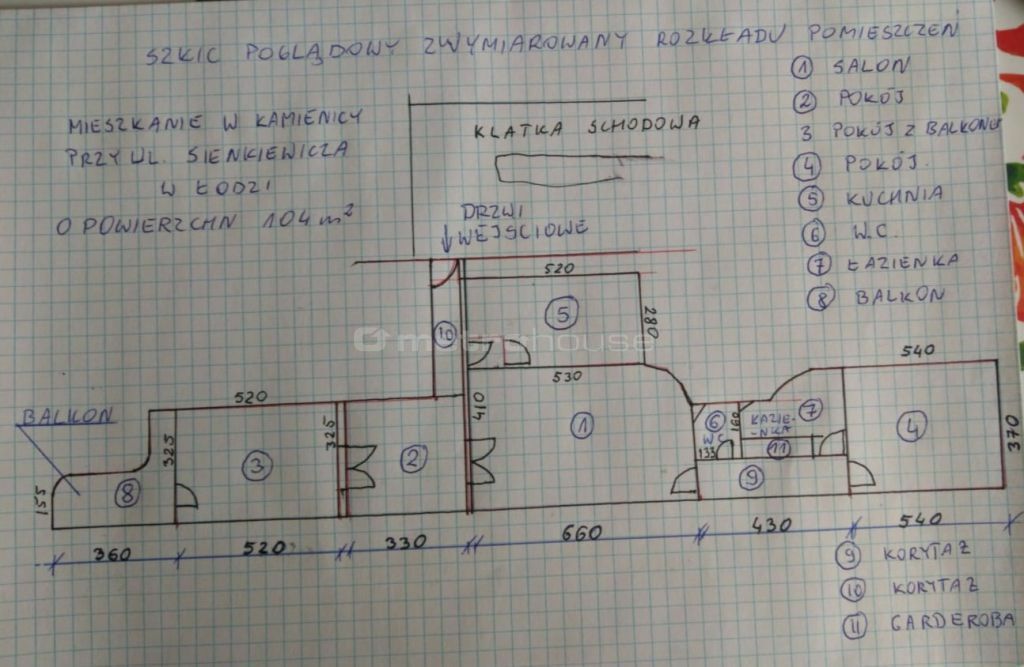 SZKIC POGLĄDOWY ZWYMIAROWANY ROZKŁADU POMIESZCZEŃ
MIESZKANIE W KAMIENICY
PRZY UL. SIENKIEWICZA
W ŁODZI
O POWIERZCHN 104 m²
KLATKA SCHODOWA
DRZWI
WEJŚCIOWE
1 SALON
2 POKÓJ
3 POKÓJ Z BALKONEM
4 POKÓJ.
5 KUCHNIA
6 W.C.
7 ŁAZIENKA
8 BALKON
520
5
280
10
metrohouse
530
540
BALKON
520
325
325
410
3
2
1
6
W.C
133
160
7
ŁAZIE-
-NKA
11
4
370
155
8
9
360
520
330
660
430
540
9 KORYTAŻ
10 KORYTAŻ
11 GARDEROBA